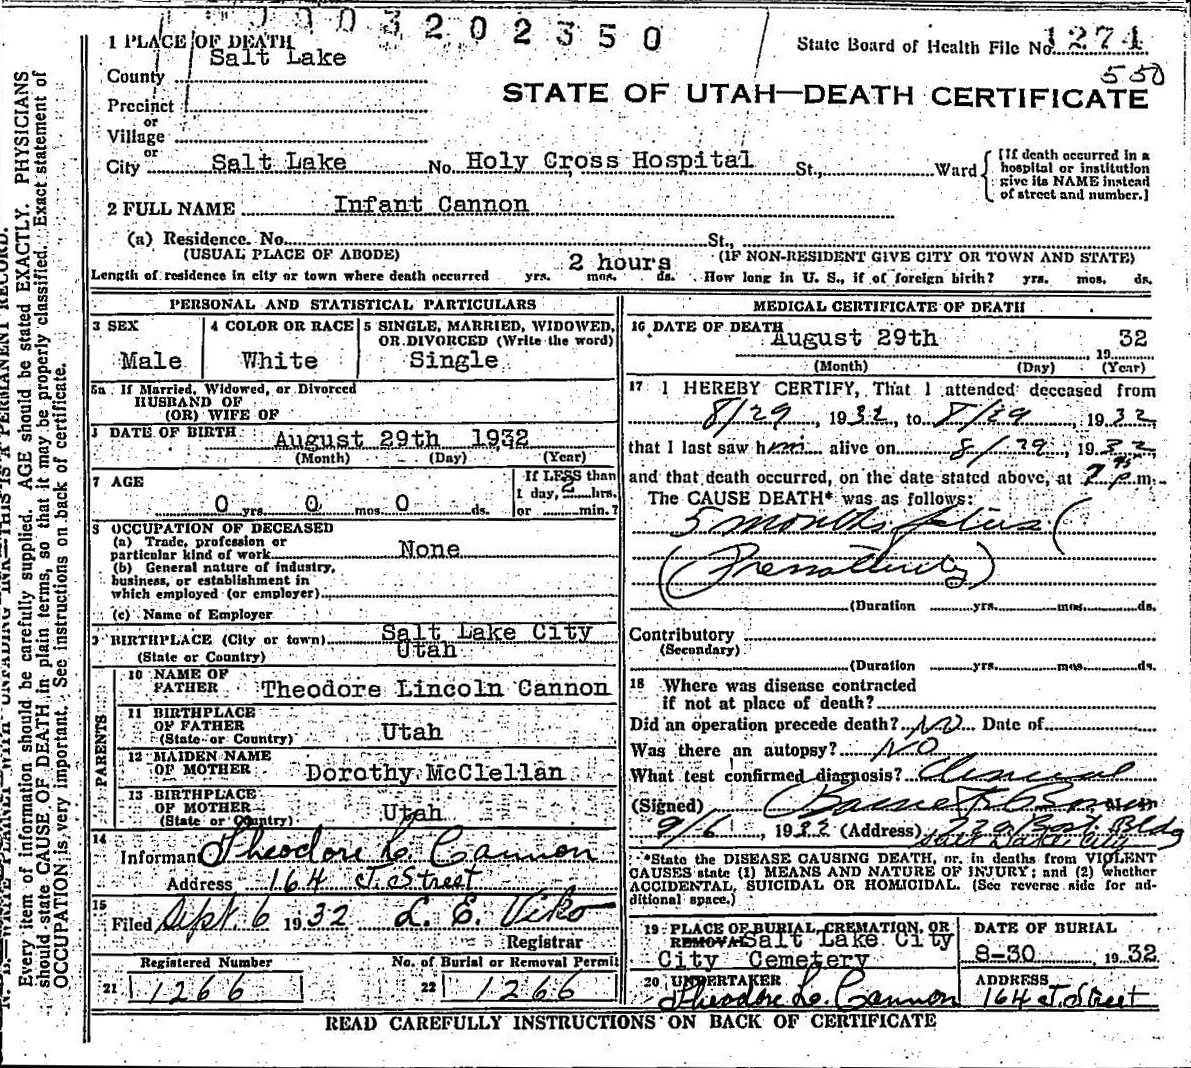 0003202350
1 PLACE OF DEATH
State Board of Health File No. 1274
Salt Lake
County
550
STATE OF UTAH—DEATH CERTIFICATE
Precinct
or
Village
or
City Salt Lake No. Holy Cross Hospital St., Ward
[If death occurred in a
hospital or institution
give its NAME instead
of street and number.]
2 FULL NAME Infant Cannon
(a) Residence. No. St.,
(USUAL PLACE OF ABODE) (IF NON-RESIDENT GIVE CITY OR TOWN AND STATE)
2 hours
Length of residence in city or town where death occurred yrs. mos. ds. How long in U. S., if of foreign birth? yrs. mos. ds.
PERSONAL AND STATISTICAL PARTICULARS
3 SEX
Male
4 COLOR OR RACE
White
5 SINGLE, MARRIED, WIDOWED,
OR DIVORCED (Write the word)
Single
5a If Married, Widowed, or Divorced
HUSBAND OF
(OR) WIFE OF
DATE OF BIRTH August 29th 1932
(Month) (Day) (Year)
7 AGE
0 yrs. 0 mos. 0 ds.
If LESS than
1 day, 2 hrs.
or min.?
8 OCCUPATION OF DECEASED
(a) Trade, profession or
particular kind of work None
(b) General nature of industry,
business, or establishment in
which employed (or employer)
(c) Name of Employer
9 BIRTHPLACE (City or town) Salt Lake City
(State or Country) Utah
PARENTS
10 NAME OF
FATHER Theodore Lincoln Cannon
11 BIRTHPLACE
OF FATHER
(State or Country) Utah
12 MAIDEN NAME
OF MOTHER Dorothy McClellan
13 BIRTHPLACE
OF MOTHER
(State or Country) Utah
14
Informant Theodore L. Cannon
Address 164 J. Street
15
Filed Sept. 6 1932 L. E. Viko
Registrar
Registered Number No. of Burial or Removal Permit
21 1266 22 1266
MEDICAL CERTIFICATE OF DEATH
16 DATE OF DEATH August 29th 1932
(Month) (Day) (Year)
17 I HEREBY CERTIFY, That I attended deceased from
8/29, 1932, to 8/29, 1932,
that I last saw him alive on 8/29, 1932
and that death occurred, on the date stated above, at p.m.
The CAUSE DEATH* was as follows:
5 months fetus (
(Prematurity)
(Duration yrs. mos. ds.
Contributory
(Secondary)
(Duration yrs. mos. ds.
18 Where was disease contracted
if not at place of death?
Did an operation precede death? No Date of
Was there an autopsy? NO
What test confirmed diagnosis? Clinical
(Signed) M. D.
9/6, 1932 (Address) Bldg
Salt Lake City
*State the DISEASE CAUSING DEATH, or, in deaths from VIOLENT
CAUSES state (1) MEANS AND NATURE OF INJURY; and (2) whether
ACCIDENTAL, SUICIDAL OR HOMICIDAL. (See reverse side for ad-
ditional space.)
19 PLACE OF BURIAL, CREMATION, OR
REMOVAL Salt Lake City
City Cemetery
DATE OF BURIAL
8-30 1932
20 UNDERTAKER
Theodore L. Cannon
ADDRESS
164 J. Street
READ CAREFULLY INSTRUCTIONS ON BACK OF CERTIFICATE
Every item of information should be carefully supplied. AGE should be stated EXACTLY. PHYSICIANS
should state CAUSE OF DEATH in plain terms, so that it may be properly classified. Exact statement of
OCCUPATION is very important. See instructions on back of certificate.